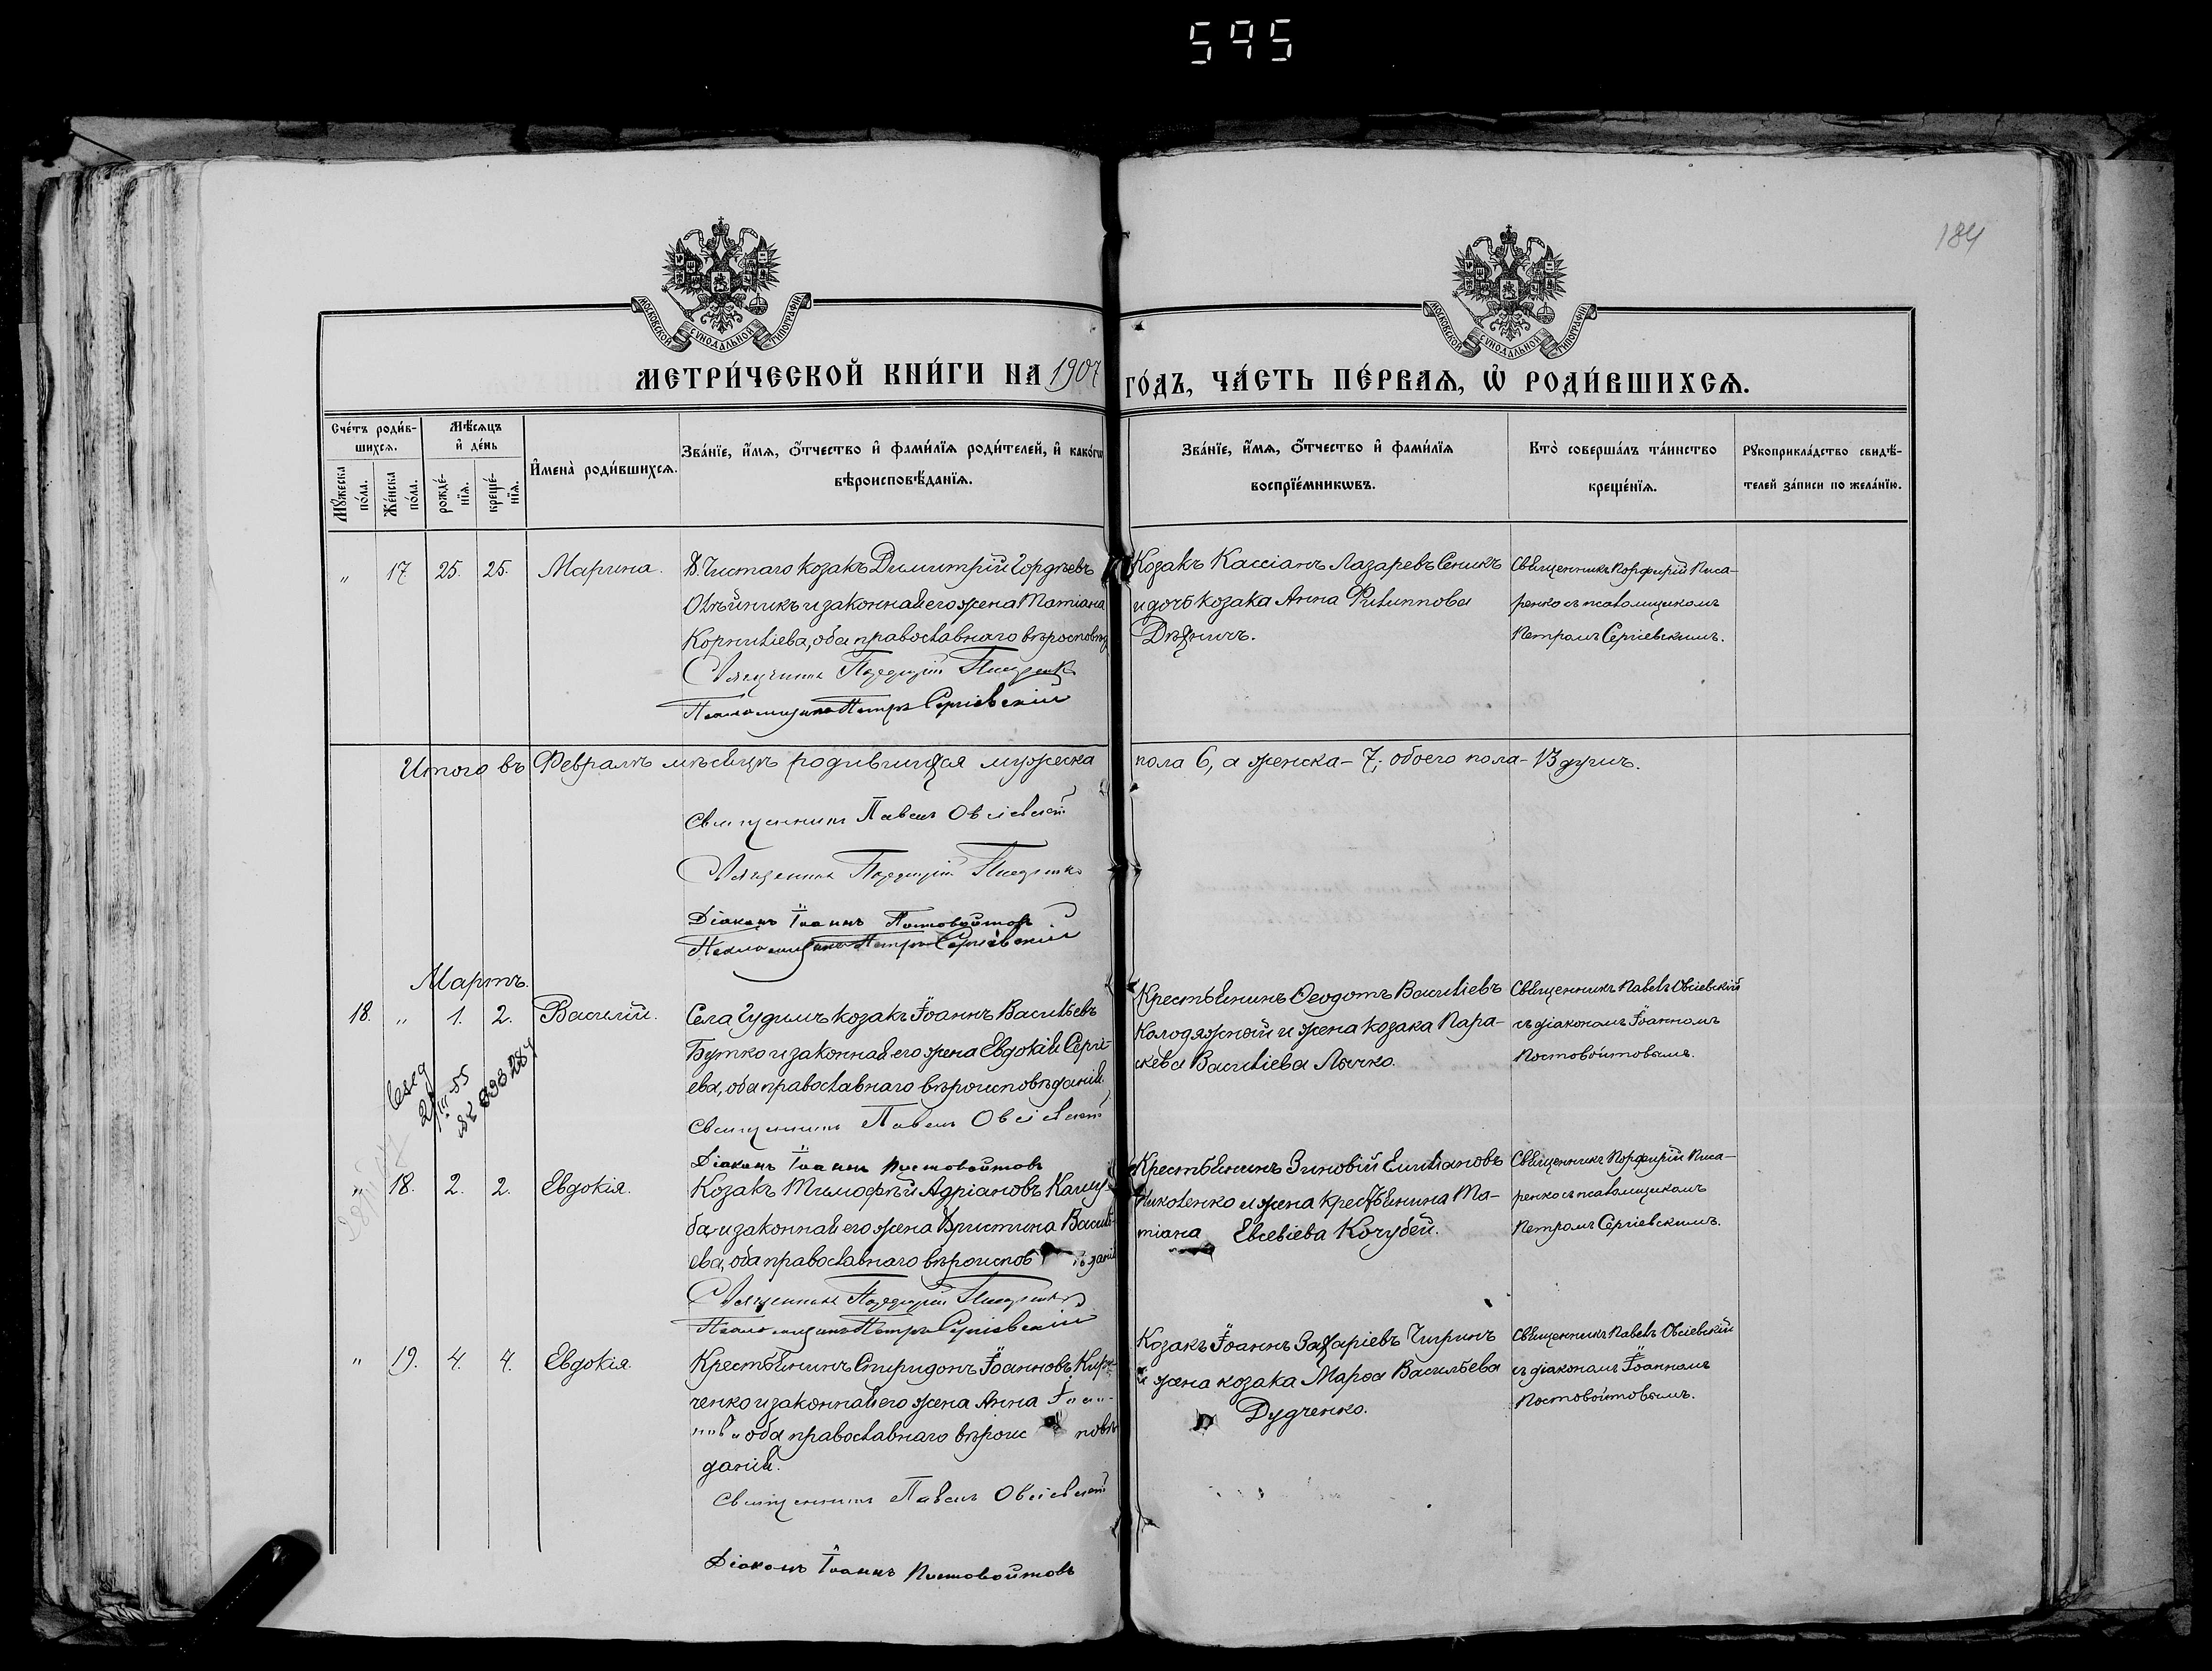 595
184
МОСКОВСКОЙ СѴНОДАЛЬНОЙ ТИПОГРАФІИ
МОСКОВСКОЙ СѴНОДАЛЬНОЙ ТИПОГРАФІИ
МЕТРИ́ЧЕСКОЙ КНИ́ГИ НА 1907 ГО́ДЪ, ЧА́СТЬ ПЕ́РВАѦ, Ѽ РОДИ́ВШИХСѦ.
Сче́тъ роди́в-
шихсѧ.
Мѣ́сѧцъ
и҆ де́нь
Мꙋ́жеска
по́ла.
Же́нска
по́ла.
рожде́-
нїѧ.
креще́-
нїѧ.
И҆мена̀ роди́вшихсѧ.
Зва́нїе, и҆́мѧ, ѻ҆́тчество и҆ фами́лїѧ роди́телей, и҆ како́гѡ
вѣроисповѣ́данїѧ.
Зва́нїе, и҆́мѧ, ѻ҆́тчество и҆ фами́лїѧ
воспрїе́мникѡвъ.
Кто̀ соверша́лъ та́инство
креще́нїѧ.
Рꙋкоприкла́дство свидѣ́-
телей за́писи по жела́нїю.
" 17 25. 25. Марина.
Х. Чистаго козакъ Димитрій Гордѣевъ
Олѣйникъ и законная его жена Татіана
Корнилiева, оба православнаго вѣроисповѣд
Священникъ Порфирій Писаренко
Псаломщикъ Петръ Сергіевскій
Козакъ Кассіанъ Лазаревъ Сеникъ
и дочь козака Анна Филиппова
Священникъ Порфирій Писа-
ренко съ псаломщикомъ
Петромъ Сергіевскимъ.
Итого въ Февралѣ мѣсяцѣ родившихся мужеска пола 6, а женска - 7; обоего пола - 13 душъ.
Священникъ Павелъ Овсіевскій
Священникъ Порфирій Писаренко
Діаконъ Іоаннъ Постовойтовъ
Псаломщикъ Петръ Сергіевскій
Мартъ.
18. " 1. 2. Василій.
Села Чудимъ козакъ Іоаннъ Васильевъ
Бутко и законная его жена Евдокія Сергі-
ева, оба православнаго вѣроисповѣданія.
Священникъ Павелъ Овсіевскій
Діаконъ Іоаннъ Постовойтовъ
Крестьянинъ Ѳеодотъ Василіевъ
Колодяжный и жена козака Пара-
скева Василіева Лычко.
Священникъ Павелъ Овсіевскій
съ діакономъ Іоанномъ
Постовойтовымъ.
" 18. 2. 2. Евдокія.
Козакъ Тимофѣй Адріановъ Кашу-
ба, и законная его жена Христина Василі-
ева, оба православнаго вѣроисповѣданія
Священникъ Порфирій Писаренко
Псаломщикъ Петръ Сергіевскій
Крестьянинъ Зиновій Емиліановъ
Николенко и жена крестьянина Та-
тіана Евсевіева Кочубей.
Священникъ Порфирій Писа-
ренко съ псаломщикомъ
Петромъ Сергіевскимъ.
" 19. 4. 4. Евдокія.
Крестьянинъ Спиридонъ Іоанновъ Кири-
ченко и законная его жена Анна
оба православнаго вѣроисповѣ
данія.
Священникъ Павелъ Овсіевскій
Діаконъ Іоаннъ Постовойтовъ
Козакъ Іоаннъ Захаріевъ Чиринъ
и жена козака Марѳа Васильева
Дудченко.
Священникъ Павелъ Овсіевскій
съ діакономъ Іоанномъ
Постовойтовымъ.